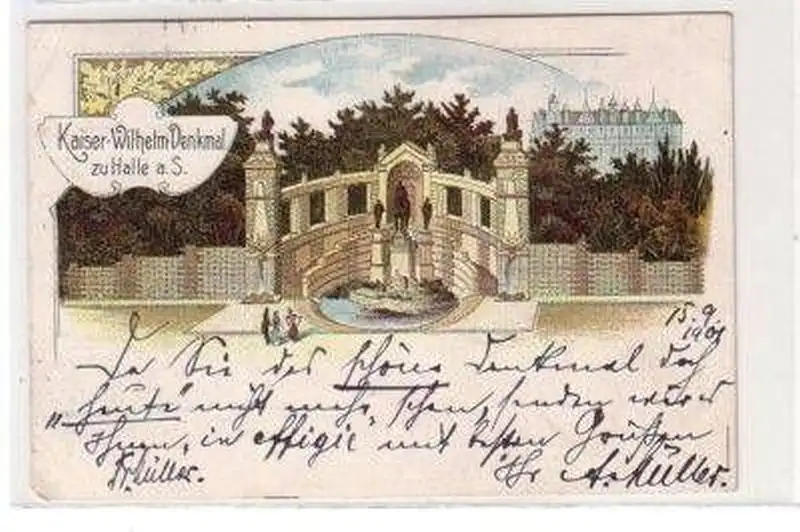 Kaiser-Wilhelm-Denkmal
zu Halle a. S.
15. 9.
1901
Da Sie das schöne Denkmal doch
„heute“ nicht mehr sehen, senden wir es
Ihnen „in effigie“ mit besten Grüßen
Müller. Ihr A. Müller.